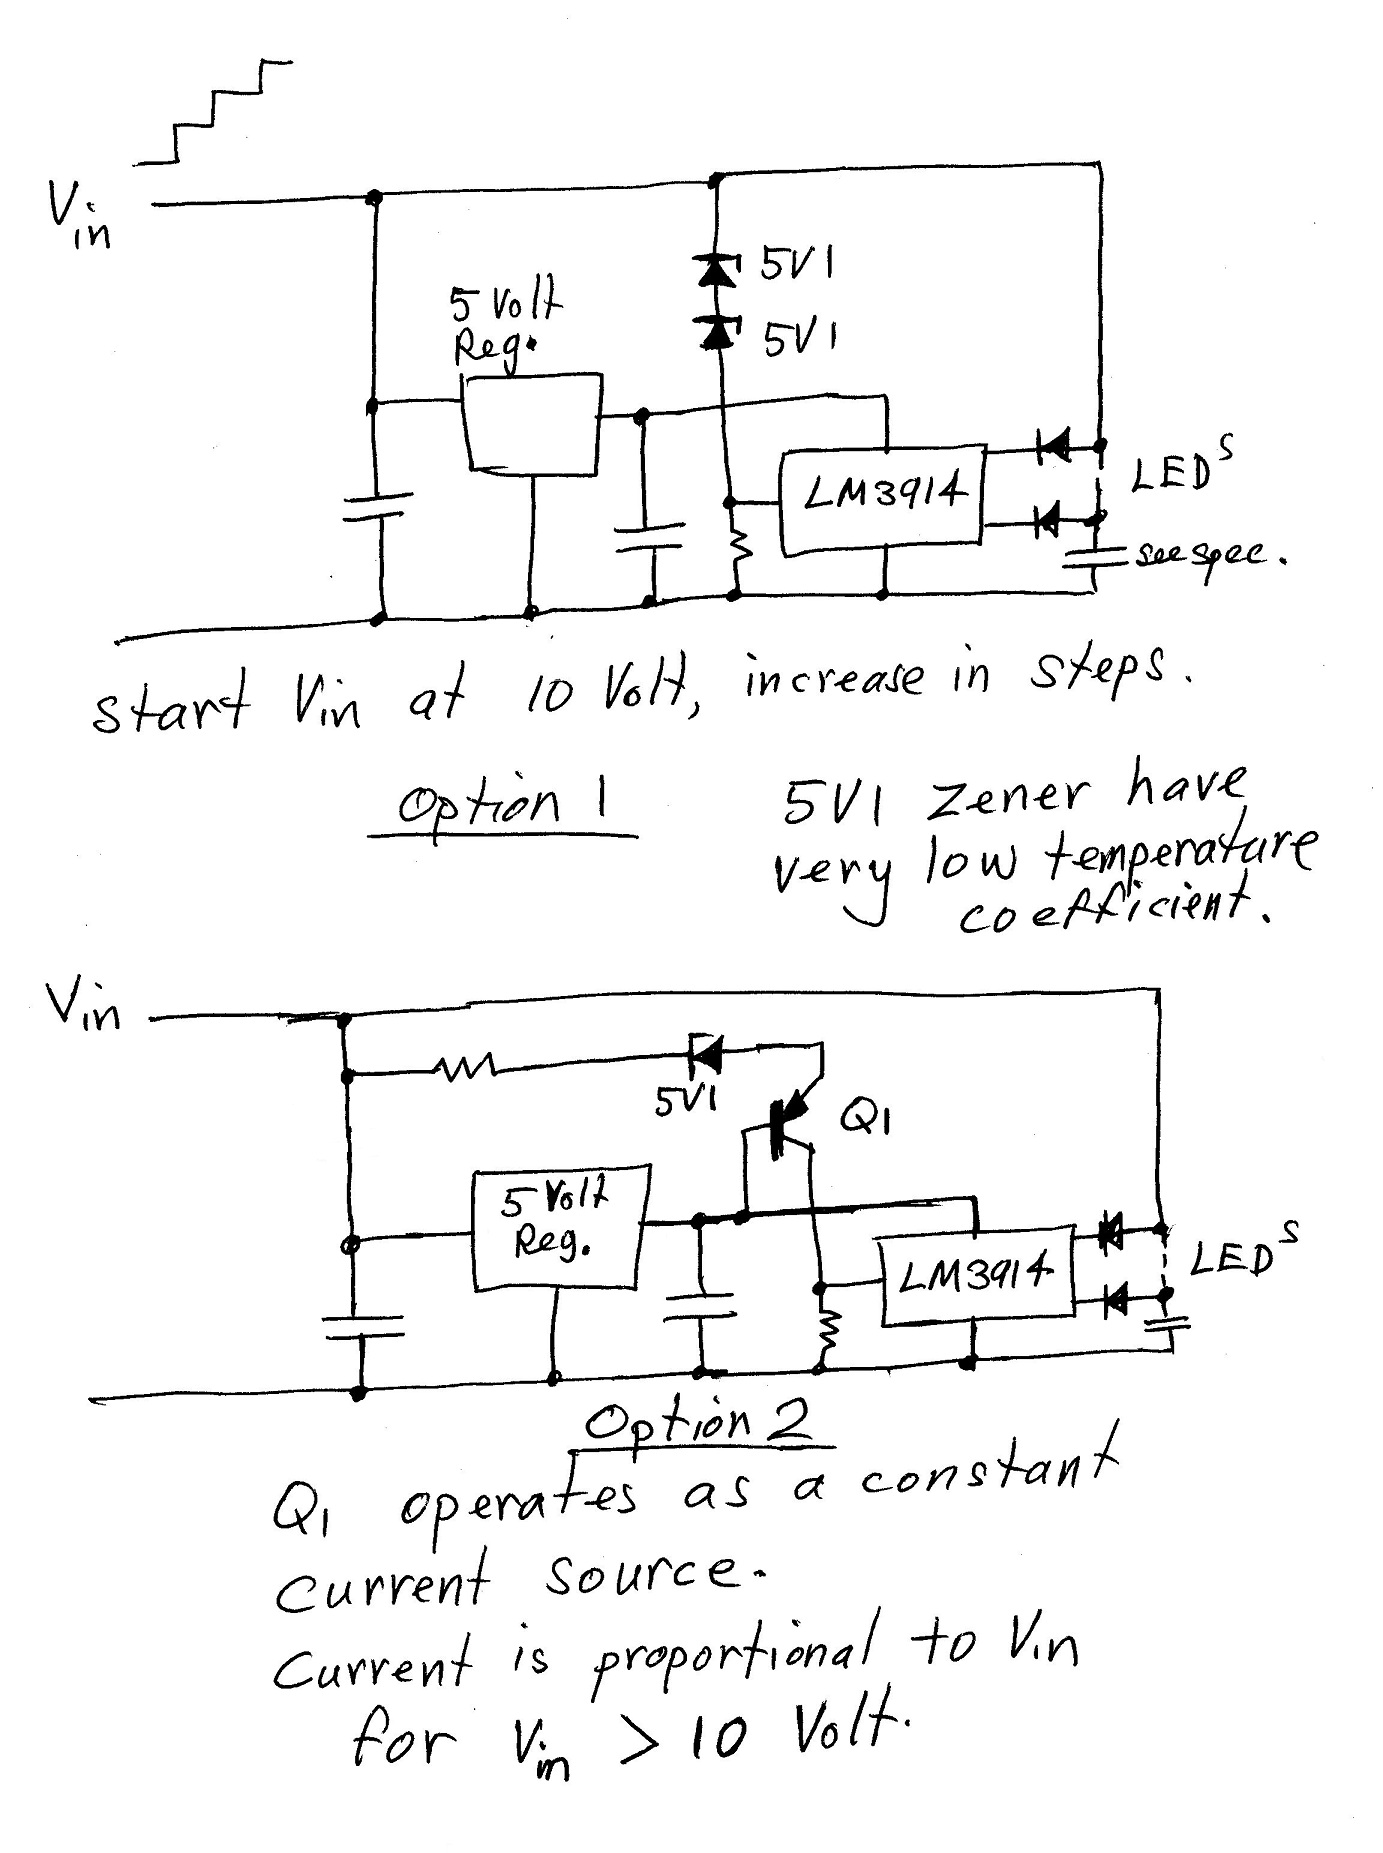 Vin
5 Volt
Reg.
5V1
5V1
LM3914
LEDS
see spec.
start Vin at 10 Volt, increase in steps.
Option 1
5V1 zener have
very low temperature
coefficient.
Vin
5V1
Q1
5 Volt
Reg.
LM3914
LEDS
Option 2
Q1 operates as a constant
current source.
Current is proportional to Vin
for Vin > 10 Volt.